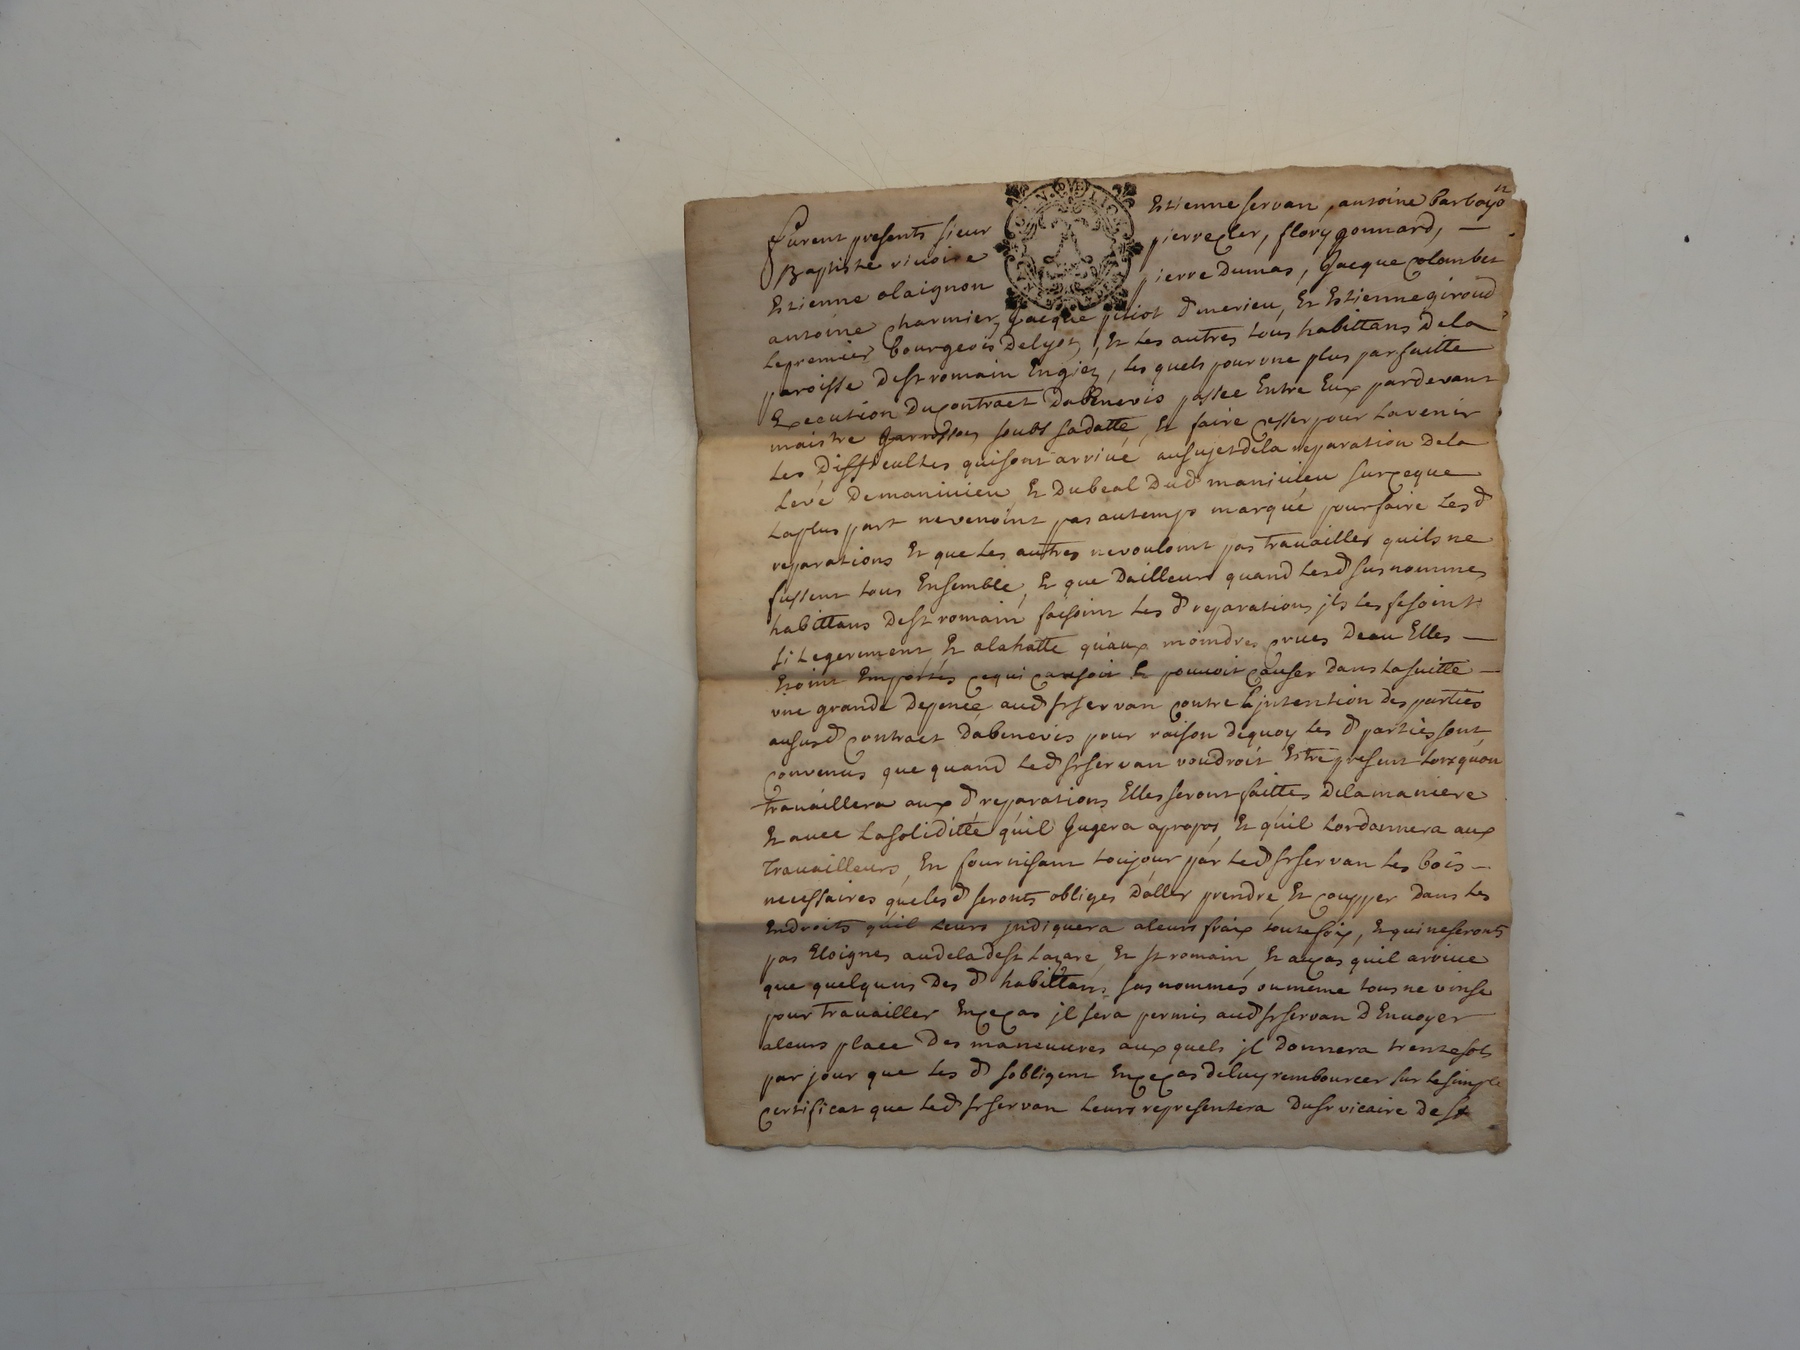 12
furent presents sieur Estienne servan, antoine barbayo
Baptiste rivoire pierre cler, flory gonnard,
Estienne olaignon pierre Dumas, Jacque colombet
antoine charmier, Jacque pitiot dt merieu, Et Estienne giroud
Lepremier bourgeois Delyon, Et Les autres tous habittans Dela
paroisse Dest romain Engier, Les quels pour une plus parfaitte
Execution Ducontract Dabenevis passee Entre Eux pardevant
maistre soubs sadatte, Et faire cesser pour Lavenir
Les Difficultes quisont arrivé ausujet dela reparation Dela
Levé Demanivieu Et Dubeal Dud manivieu surceque
Laplus part nevenoint pas autemps marqué pourfaire Lesd
reparations Et que Les autres nevouloint pas travailler quils ne
fussent tous Ensemble, Et que Dailleurs quand Lesd susnommes
habittans Dest romain faisoint Les d reparations jls Les fesoint
si Legerement, Et alahatte quaux moindres crues Deau Elles
Etoint Emportés cequi causoit Et pouvoit causer Dans Lasuitte
une grande Depence aud sr servan contre Ljntention Des parties
aususd contract Dabenevis pour raison Dequoy Les d parties sont
convenus que quand Led sr servan voudroit Estre present Lorsquon
travaillera aux d reparations Elles seront faittes Delamaniere
Et avec Lasoliditté quil Jugera apropos, Et quil Lordonnera aux
travailleurs, En fournisant toujour par Led sr servan Les bois
necessaires queles d seronts obliges Daller prendre Et coupper Dans Les
Endroits quil Leurs jndiquera aleurs fraix toutefoix, Et qui neseronts
pas Eloignes audela dest Lazare Et st romain, Et aucas quil arrive
que quelquns Des d habittans susnommés oumême tous ne vinse
pour travailler Encecas jl sera permis aud sr servan D Envoyer
aleurs place Des maneuvres auxquels jl Donnera trente sols
par jour que Les d sobligent Encecas deluy rembourcer sur Lesimple
certificat que Led sr servan Leurs representera Dusr vicaire De st